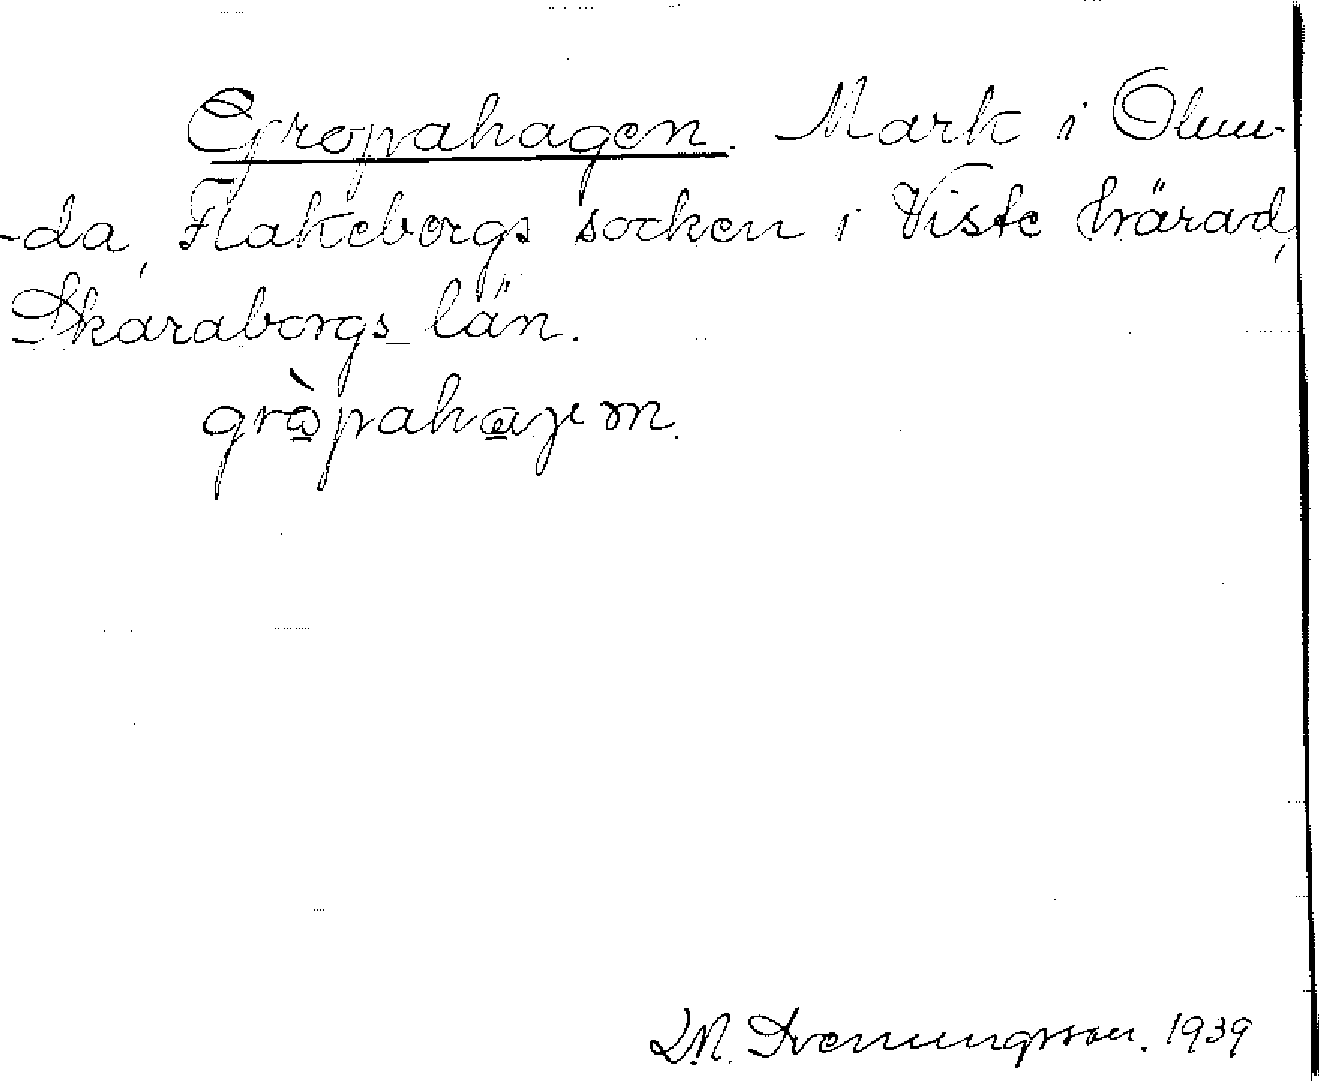 Gropahagen. Mark i Olun-
-da, Flakebergs socken i Viste härad,
Skaraborgs län.
gròpahaγεn.
1939